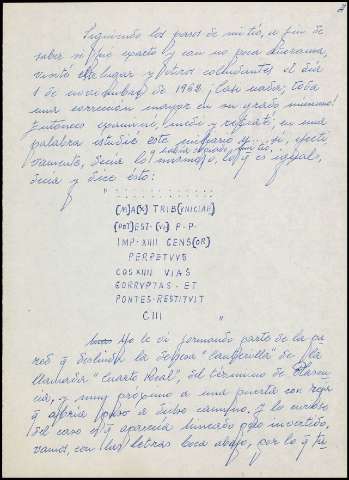 Siguiendo los pasos de mi tío, a fin de
saber si fue exacto y con no poca
visité el lugar y otros colindantes el día
1 de noviembre de 1968; casi nada; toda
una corrección mayor en su grado máximo!
Entonces examiné, medí y en una
palabra estudié este miliario y sí, efecti
vamente, decía lo mismo q había copiado mi tío, lo q es igual,
decía y dice esto:
" . . . . . . . . . . . . .
(M)A(X) TRIB(VNICIAE)
(POT)EST·(VI) P·P·
IMP·XIIII CENS(OR)
PERPETVVS
COS XIIII VIAS
CORRVPTAS·ET
PONTES·RESTITVIT
CIII "
Yo le vi formando parte de la pa
red q deslinda la dehesa de la
llamada "Cuarto Real", del término de Plasen
cia, y muy próximo a una puerta con reja
q abría paso a dicho camino. Y lo curioso
del caso es q aparecía hincado pero invertido,
vamos, con las letras boca abajo, por lo q